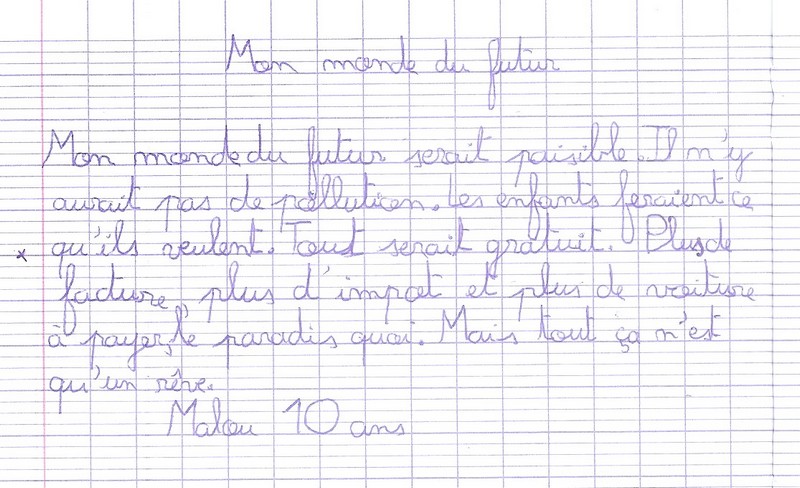 Mon monde du futur
Mon monde du futur serait paisible. Il n'y
aurait pas de pollution. Les enfants feraient ce
qu'ils veulent. Tout serait gratuit. Plus de
facture, plus d'impot et plus de voiture
à payer, le paradis quoi. Mais tout ça n'est
qu'un rêve.
Malou 10 ans